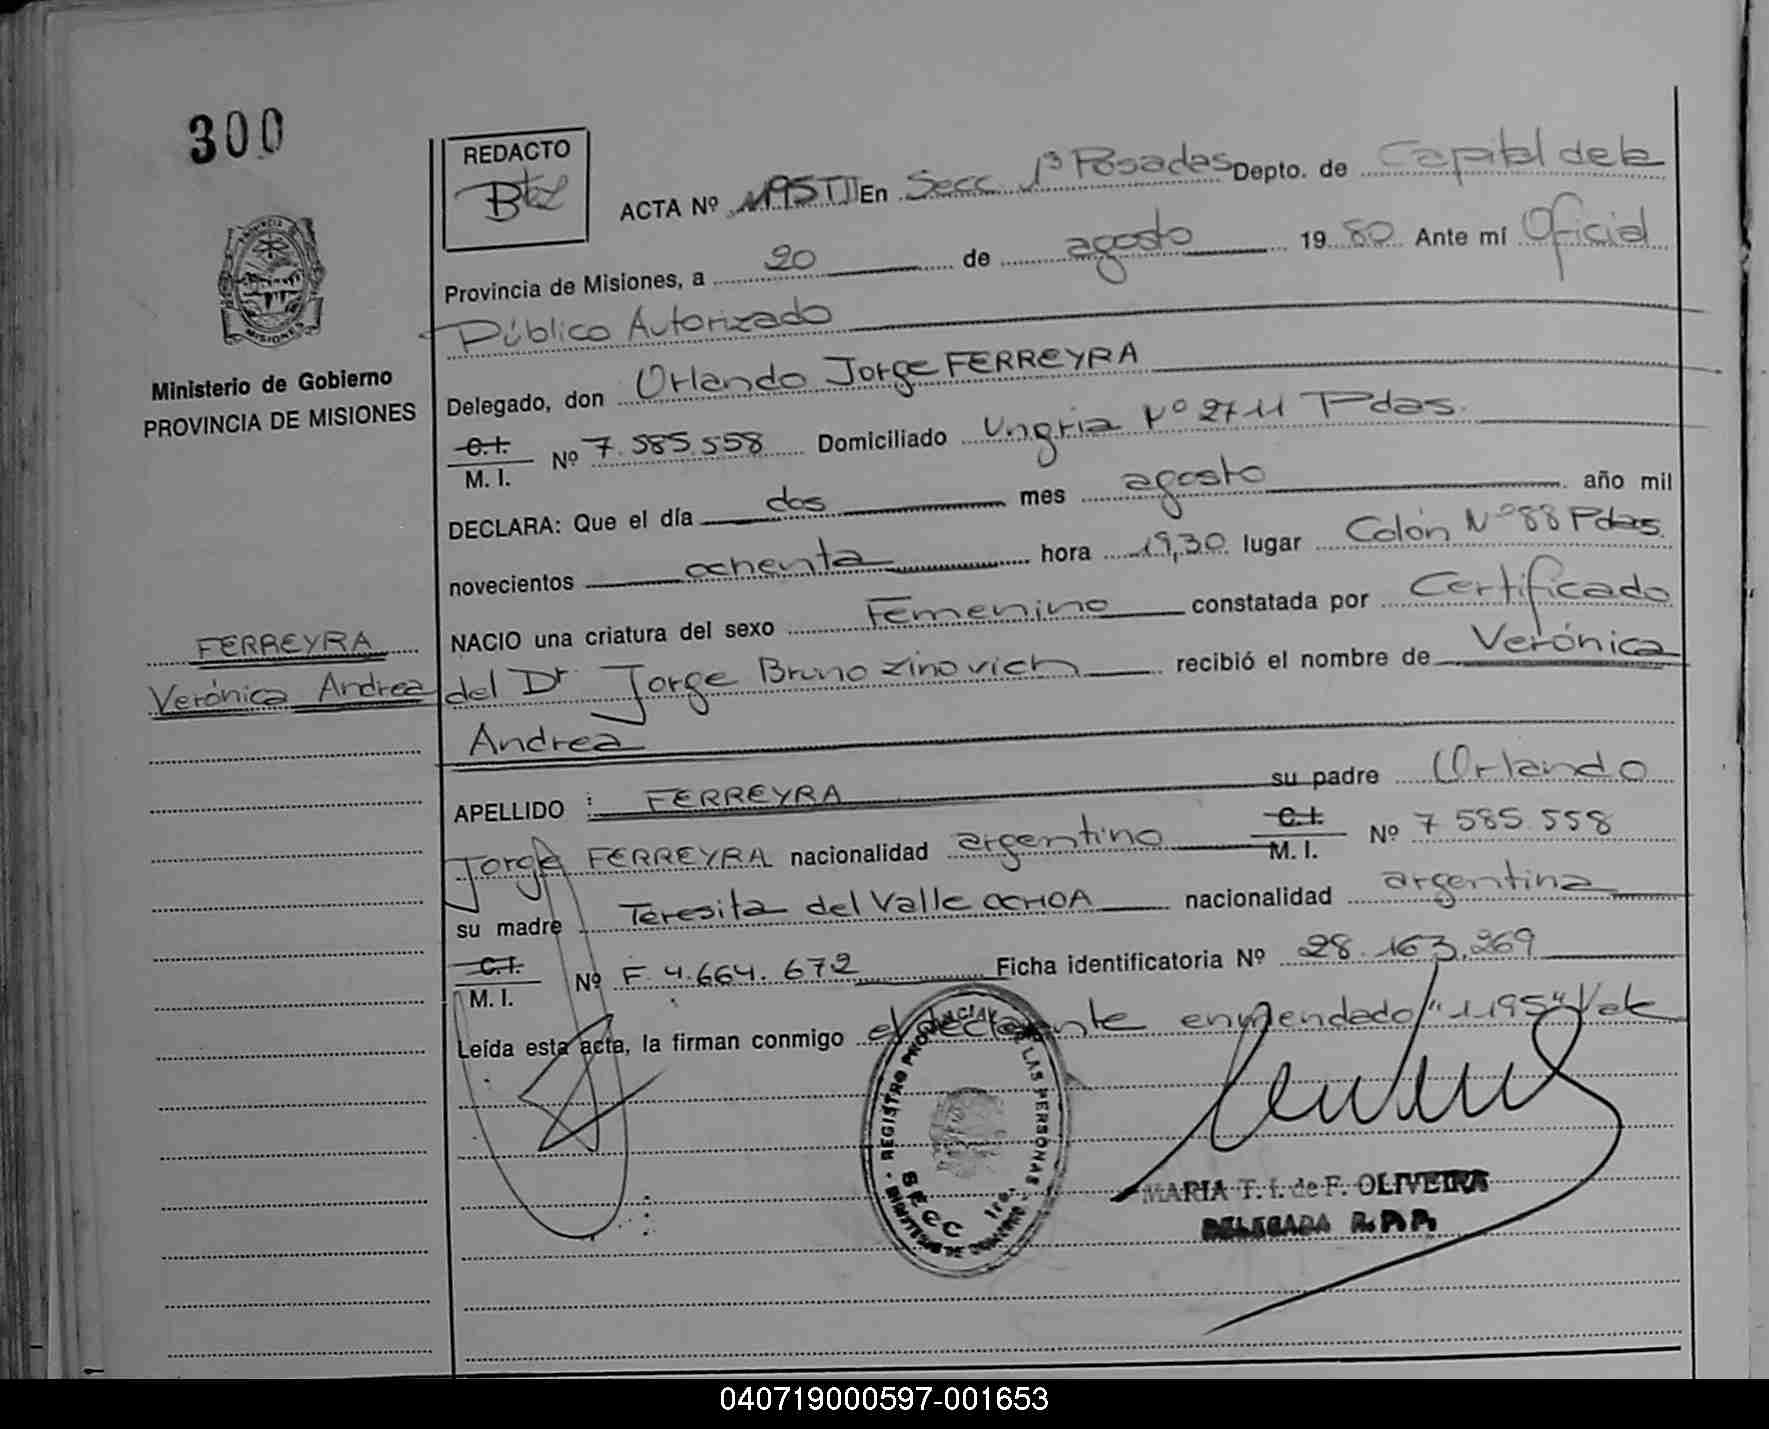 300
REDACTO
ACTA Nº 1195 TII En Secc. 1ª Posadas Depto. de Capital de la
Provincia de Misiones, a 20 de agosto 1980 Ante mí Oficial
Público Autorizado
Ministerio de Gobierno
PROVINCIA DE MISIONES
Delegado, don Orlando Jorge FERREYRA
C.I.
M. I. Nº 7.585.558 Domiciliado Ungria Nº 2711 Pdas.
DECLARA: Que el día dos mes agosto año mil
novecientos ochenta hora 19,30 lugar Colón Nº 88 Pdas.
NACIO una criatura del sexo Femenino constatada por Certificado
FERREYRA
Verónica Andrea
del Dr Jorge Bruno Zinovich recibió el nombre de Verónica
Andrea
APELLIDO : FERREYRA su padre Orlando
Jorge FERREYRA nacionalidad argentino C.I. M. I. Nº 7 585.558
su madre Teresita del Valle OCHOA nacionalidad argentina
C.I.
M. I. Nº F 4.664.672 Ficha identificatoria Nº 28.163.269
Leída esta acta, la firman conmigo el declarante enmendado "1195" Vale
REGISTRO PROVINCIAL DE LAS PERSONAS
SECC 1ra.
MARIA T. I. de F. OLIVEIRA
DELEGADA R.P.P.
040719000597-001653